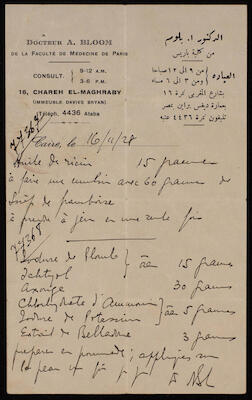 DOCTEUR A. BLOOM
DE LA FACULTÉ DE MÉDECINE DE PARIS
CONSULT. { 9-12 A.M.
3-6 P.M.
16, CHAREH EL-MAGHRABY
(IMMEUBLE DAVIES BRYAN)
(Téléph. 4436 Ataba
الدكتور ا. بلوم
من كلية باريس
العياده { من ٩ الى ١٢ صباحا
ومن ٣ الى ٦ مساء
بشارع المغربى نمرة ١٦
بعمارة ديفس براين بمصر
تليفون نمرة ٤٤٣٦ عتبه
Cairo, le 16/11/28
Huile de ricin 15 grammes
à faire une emulsion avec 60 grammes de
Sirop de framboise
à prendre à jeun en une seule fois
Iodure de Plomb } āā 15 grams
Ichtyol
Axonge 30 grams
Chlorhydrate d'Ammon } āā 5 grams
Iodure de Potassium
Extrait de Belladone 3 grams
preparer en pommade; appliquer sur
la peau